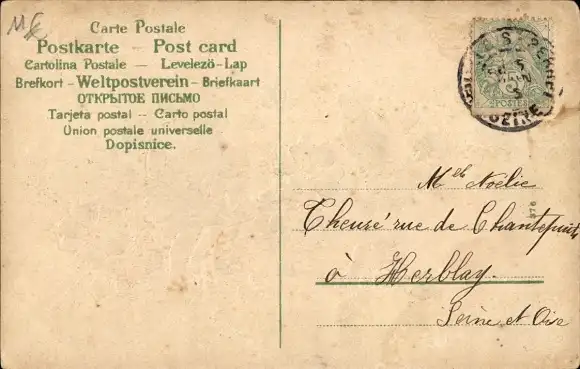 Carte Postale
Postkarte — Post card
Cartolina Postale — Levelező-Lap
Brefkort - Weltpostverein - Briefkaart
ОТКРЫТОЕ ПИСЬМО
Tarjeta postal — Carto postal
Union postale universelle
Dopisnice.
2F POSTES
Melle Noélie
Theuré rue de Chantepuits
à Herblay.
Seine et Oise